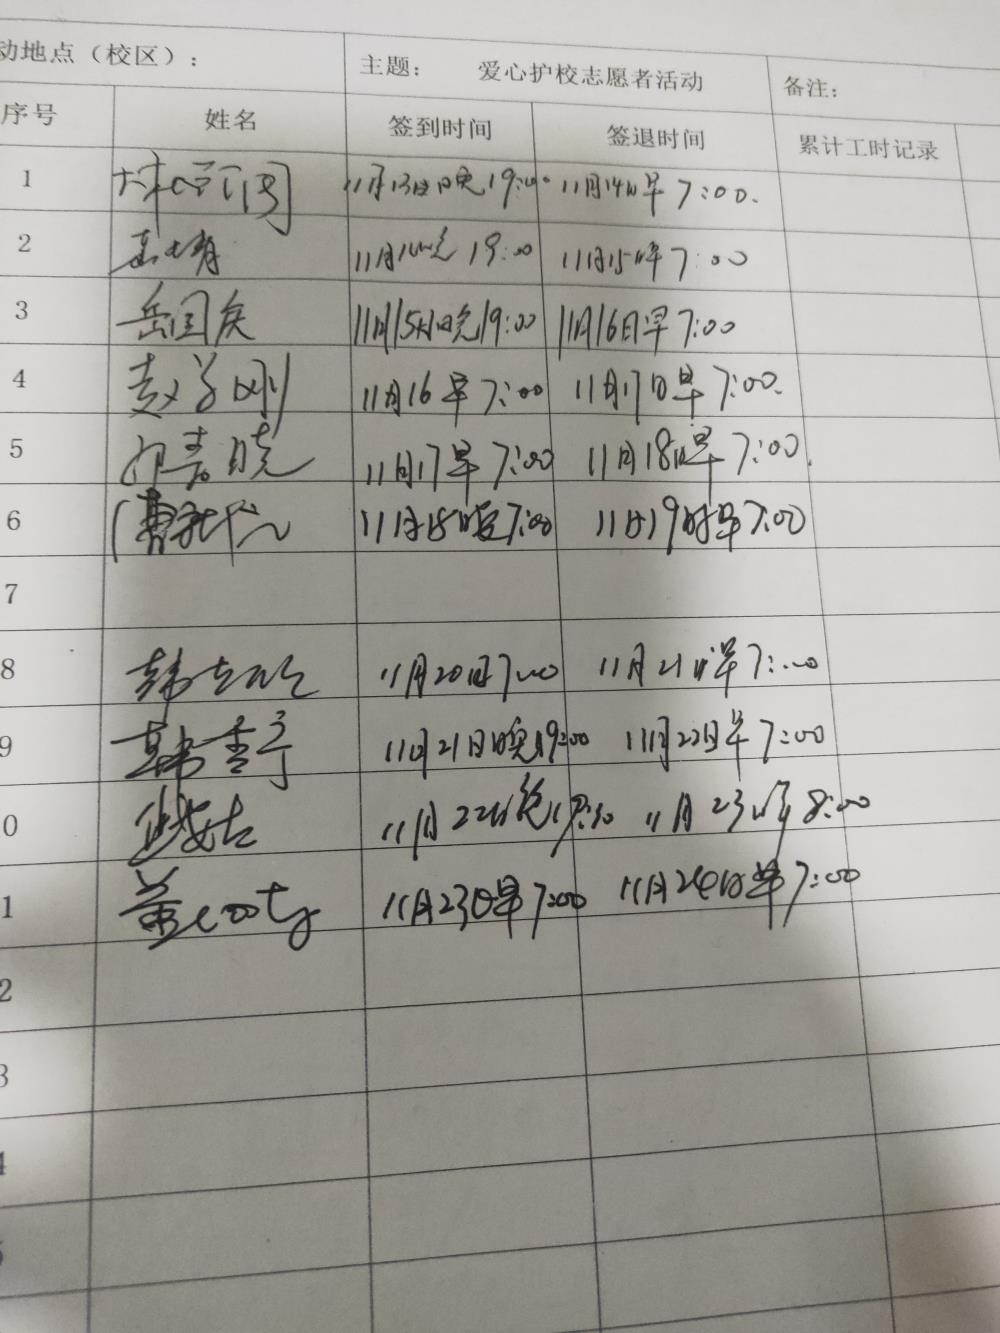 动地点（校区）： 主题： 爱心护校志愿者活动 备注：
序号 姓名 签到时间 签退时间 累计工时记录
1 11月13日晚19:00 11月14日早7:00.
2 11月14晚19:00 11月15日早7:00
3 岳国庆 11月15日晚19:00 11月16日早7:00
4 赵学刚 11月16早7:00 11月17日早7:00.
5 11月17早7:00 11月18日早7:00.
6 曹 11月18日晚7:00 11月19日早7:00
7
8 韩 11月20日7:00 11月21日早7:00
9 韩 11月21日晚19:00 11月22日早7:00
0 11月22日晚 11月23日早8:00
1 董 11月23日早7:00 11月24日早7:00
2
3
4
5